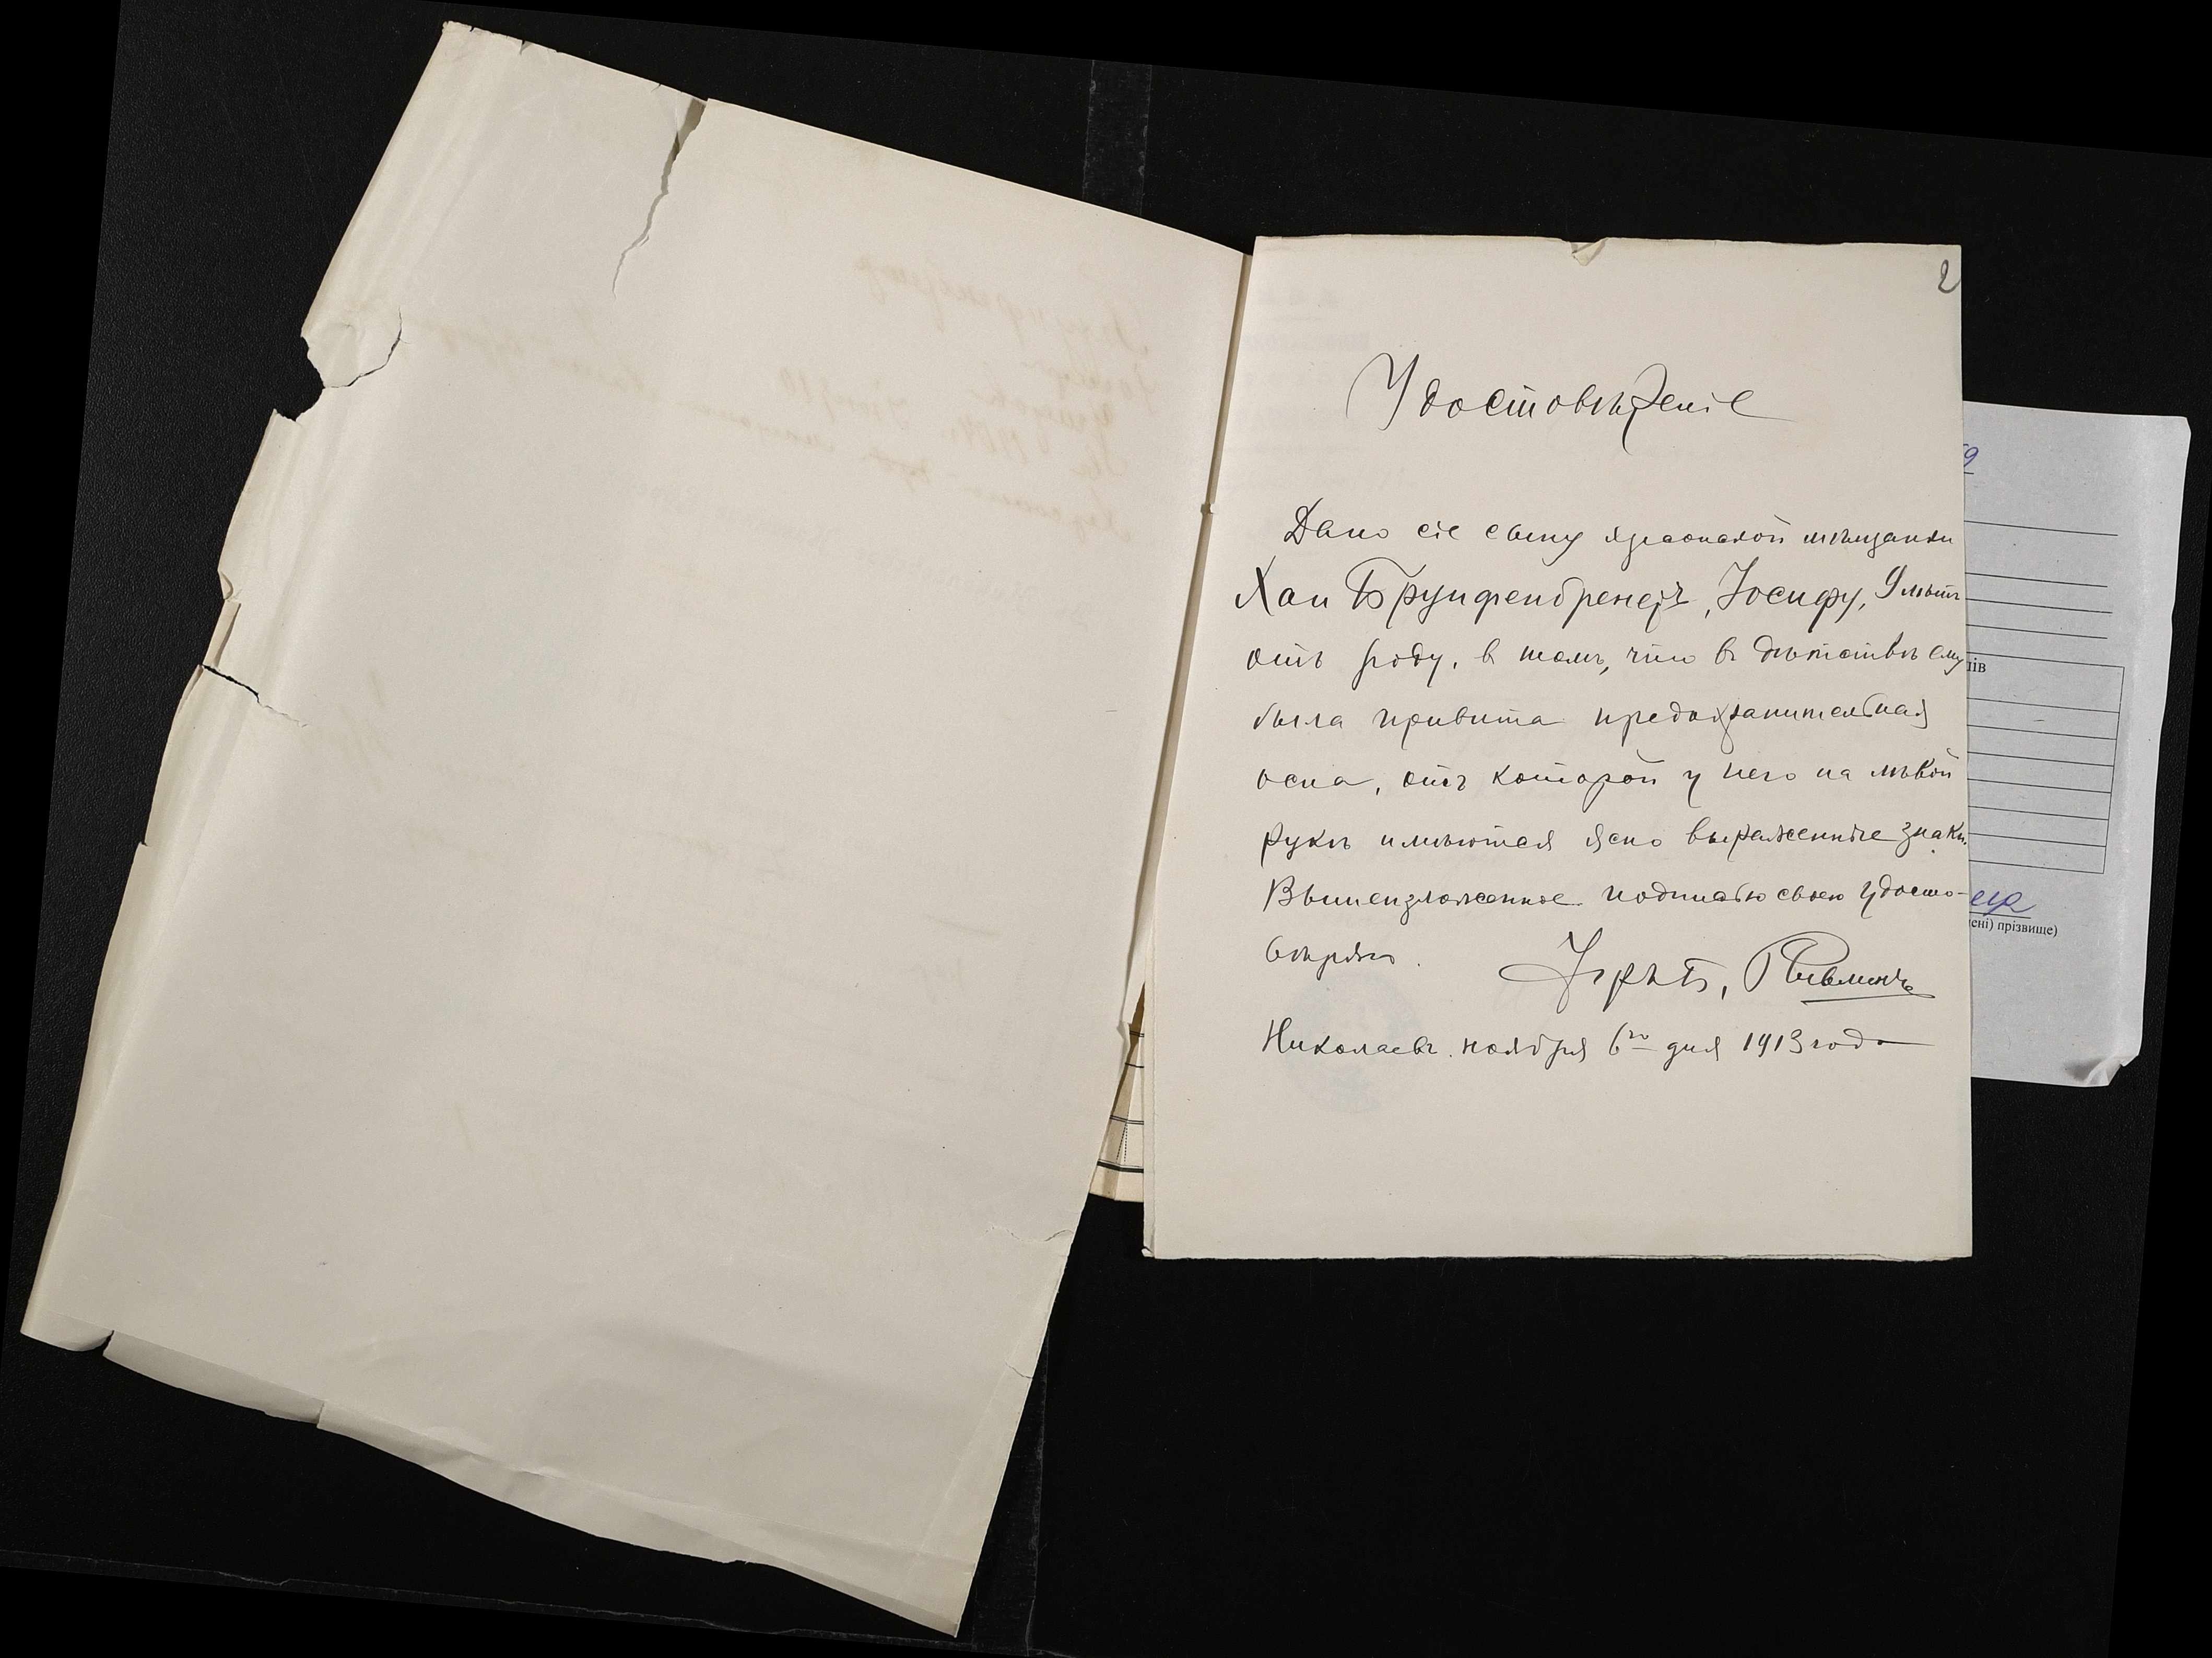 2
Удостовѣреніе
Дано сіе сыну херсонской мѣщанки
Хаи Брунфенбренеръ, Іосифу, 9 лѣтъ
отъ роду, в томъ, что в дѣтствѣ ему
была привита предохранительная
оспа, отъ которой у него на лѣвой
рукѣ имѣются ясно выраженные знаки.
Вышеизложенное подписью своею удосто-
вѣряю.
Николаевъ. ноября 6го дня 1913 года
9
ів
ені) прізвище)